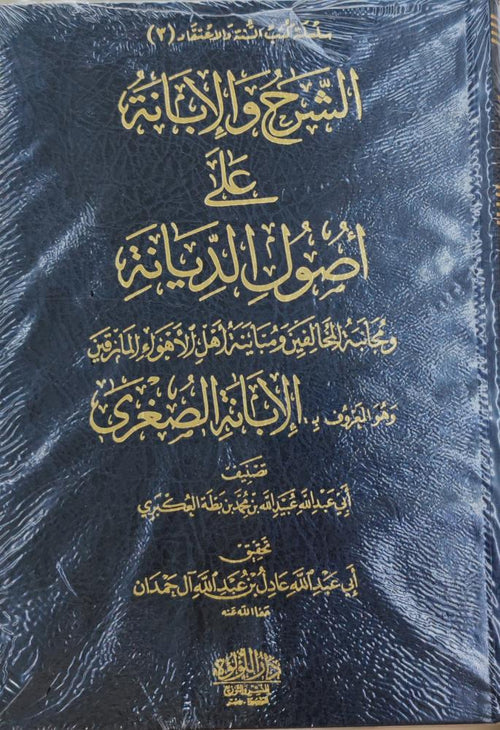 سلسلة كتب السنة والاعتقاد (٣)
الشَّرْحُ وَالإِبَانَةُ
عَلَى
أُصُولِ الدِّيَانَةِ
وَمُجَانَبَةِ المُخَالِفِينَ وَمُبَايَنَةِ أَهْلِ الأَهْوَاءِ المَارِقِينَ
وَهُوَ المَعْرُوف بِـ: الإِبَانَةِ الصُّغْرَى
تَصْنِيف
أَبِي عَبْدِ اللهِ عُبَيْدِ اللهِ بْنِ مُحَمَّد بْن بَطَّة العُكْبَرِي
تَحْقِيق
أَبِي عَبْدِ اللهِ عَادِلِ بْنِ عَبْدِ اللهِ آل حَمْدَان
عَفَا اللهُ عَنه
دار اللؤلؤة
للنشر والتوزيع